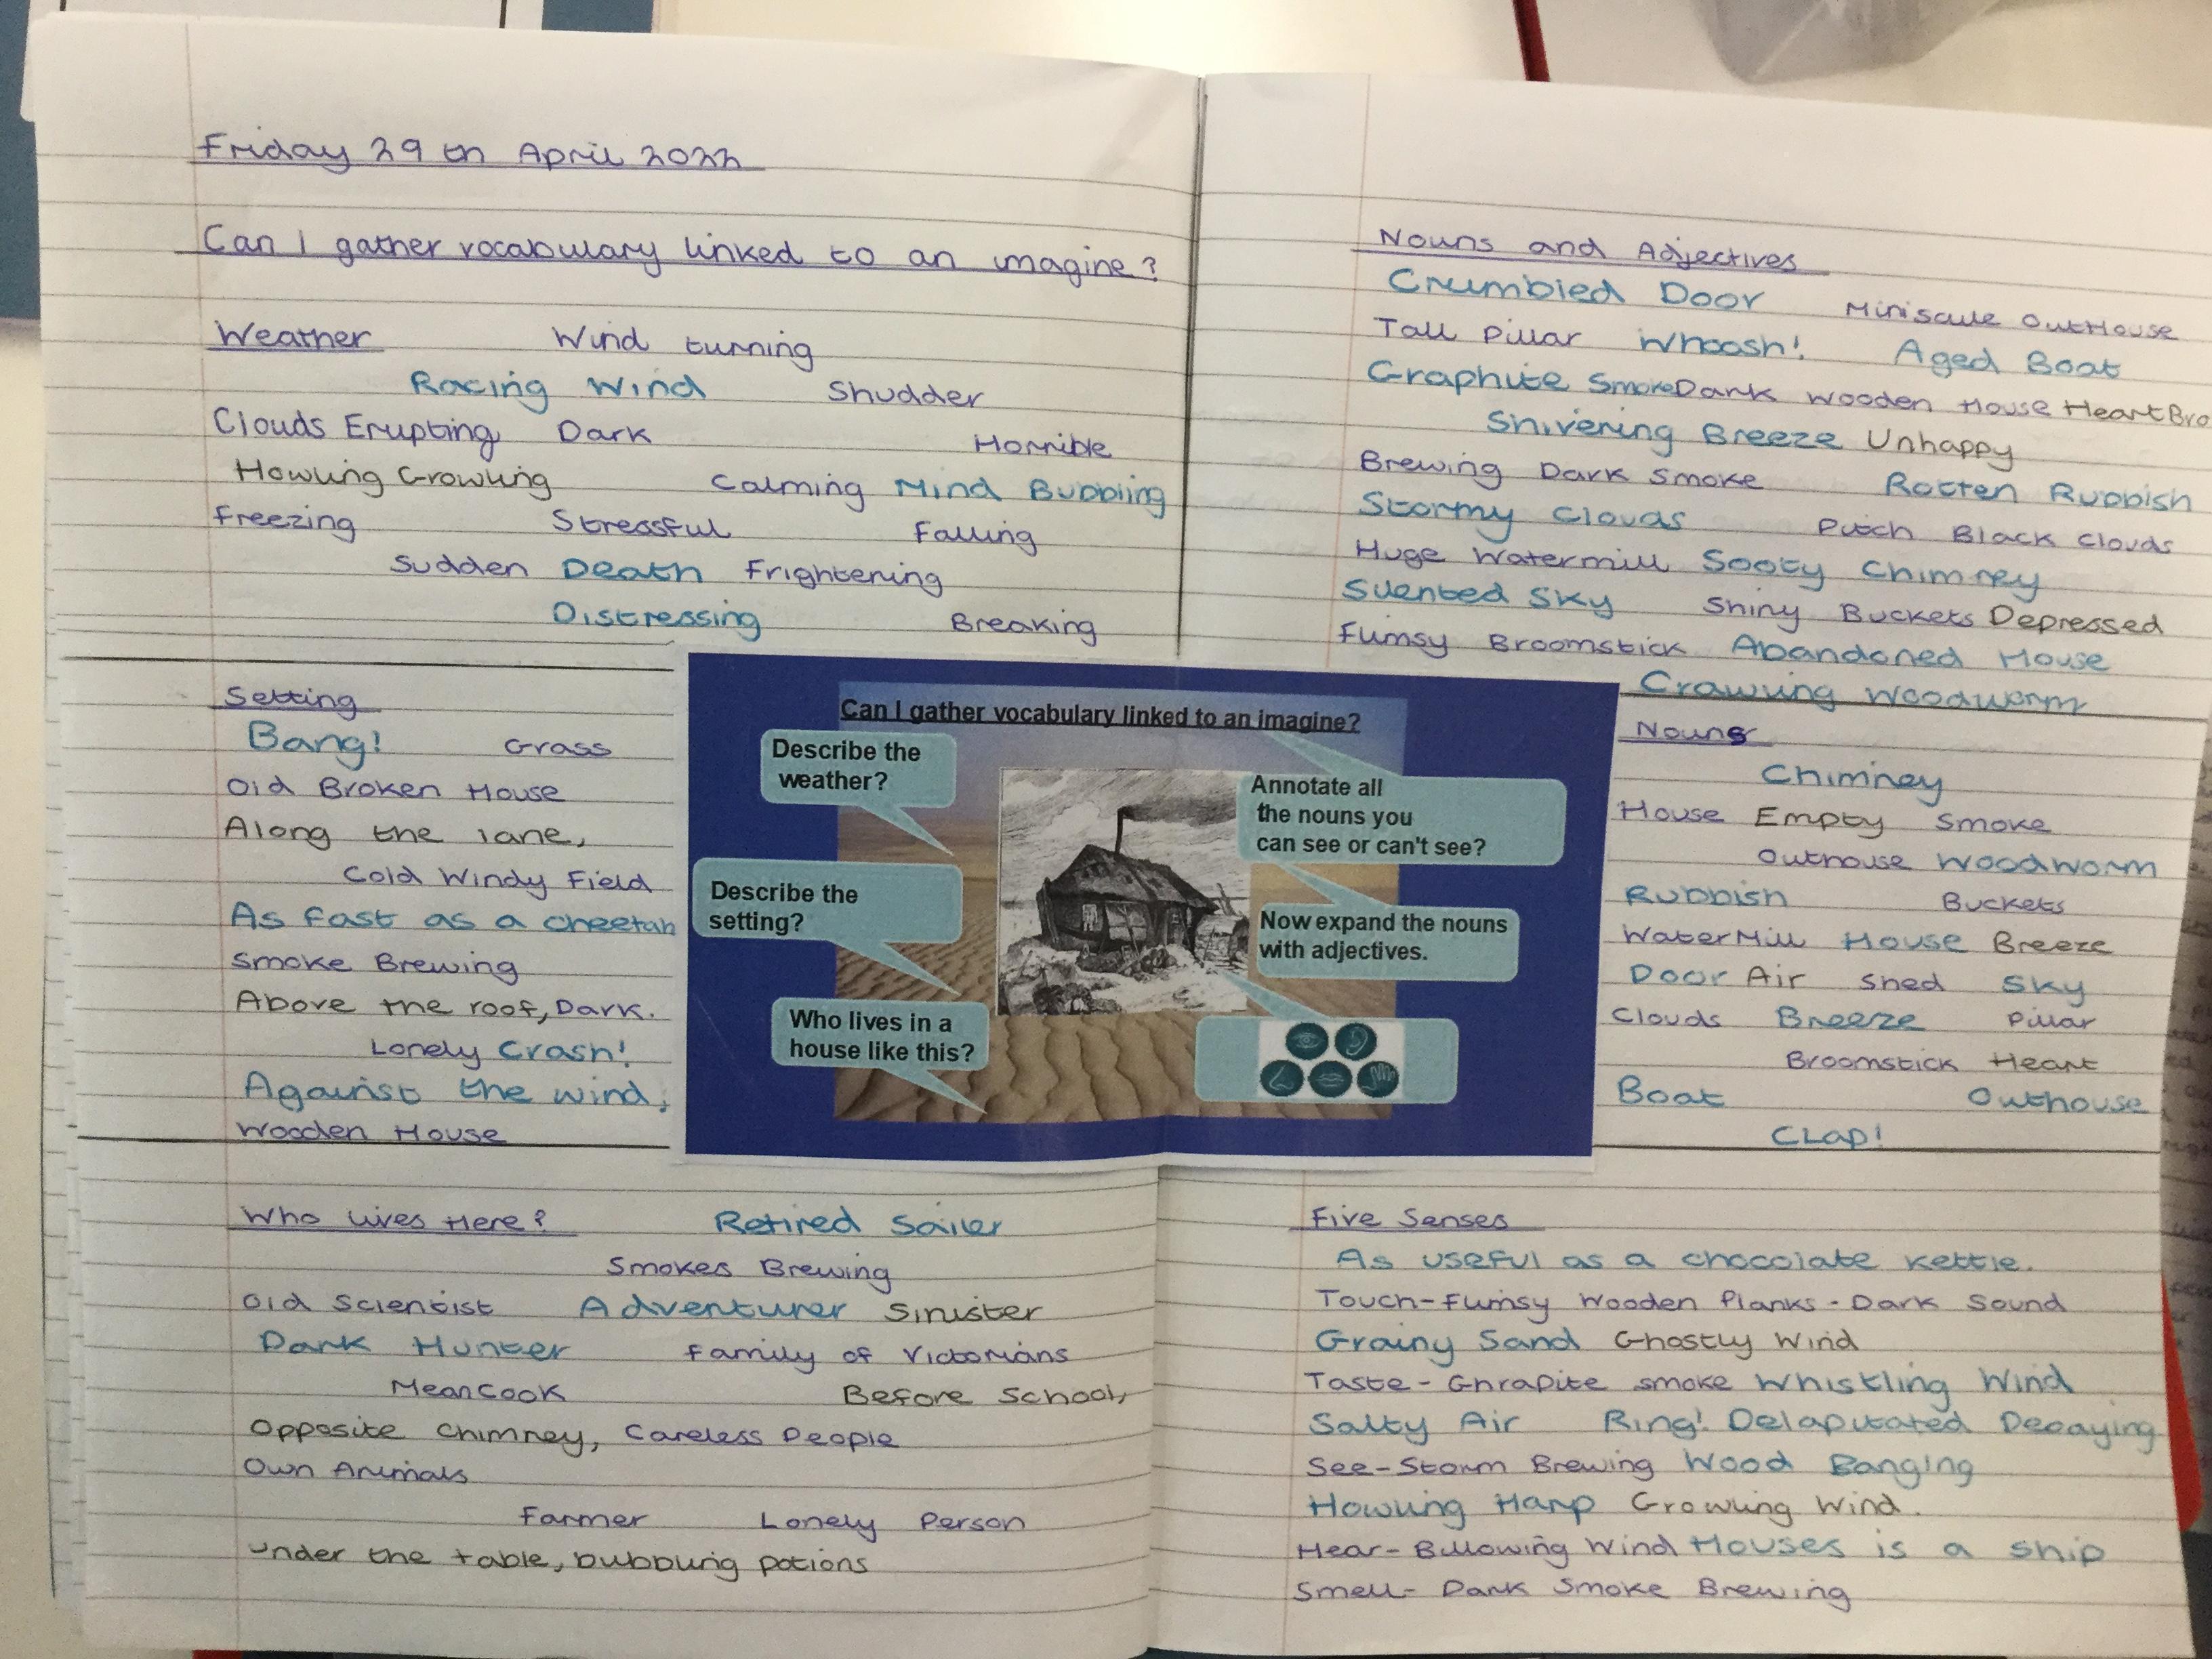 Friday 29th April 2022
Can I gather vocabulary linked to an imagine?
Weather Wind turning
Racing Wind Shudder
Clouds Erupting Dark Horrible
Howling Growling Calming Mind Bubbling
Freezing Stressful Falling
Sudden Death Frightening
Distressing Breaking
Setting
Bang! Grass
Old Broken House
Along the lane,
Cold Windy Field
As fast as a cheetah
Smoke Brewing
Above the roof, Dark.
Lonely Crash!
Against the wind,
Wooden House
Can I gather vocabulary linked to an imagine?
Describe the
weather?
Describe the
setting?
Who lives in a
house like this?
Annotate all
the nouns you
can see or can't see?
Now expand the nouns
with adjectives.
Who Lives Here? Retired Sailer
Smokes Brewing
Old Scientist Adventurer Sinister
Dark Hunter Family of Victorians
Mean Cook Before School,
Opposite Chimney, Careless People
Own Animals
Farmer Lonely Person
Under the table, bubbling potions
Nouns and Adjectives
Crumbled Door Miniscule OutHouse
Tall Pillar Whoosh! Aged Boat
Graphite Smoke Dark Wooden House HeartBro
Shivering Breeze Unhappy
Brewing Dark Smoke Rotten Rubbish
Stormy Clouds Pitch Black Clouds
Huge Watermill Sooty Chimney
Silented Sky Shiny Buckets Depressed
Flimsy Broomstick Abandoned House
Crawling Woodworm
Nouns
Chimney
House Empty Smoke
Outhouse Woodworm
Rubbish Buckets
WaterMill House Breeze
Door Air Shed Sky
Clouds Breeze Pillar
Broomstick Heart
Boat Outhouse
CLap!
Five Senses
As useful as a chocolate kettle.
Touch-Flimsy Wooden Planks-Dark Sound
Grainy Sand Ghostly Wind
Taste-Ghrapite smoke Whistling Wind
Salty Air Ring! Delapitated Decaying
See-Storm Brewing Wood Banging
Howling Harp Growling Wind.
Hear-Billowing Wind Houses is a ship
Smell-Dark Smoke Brewing